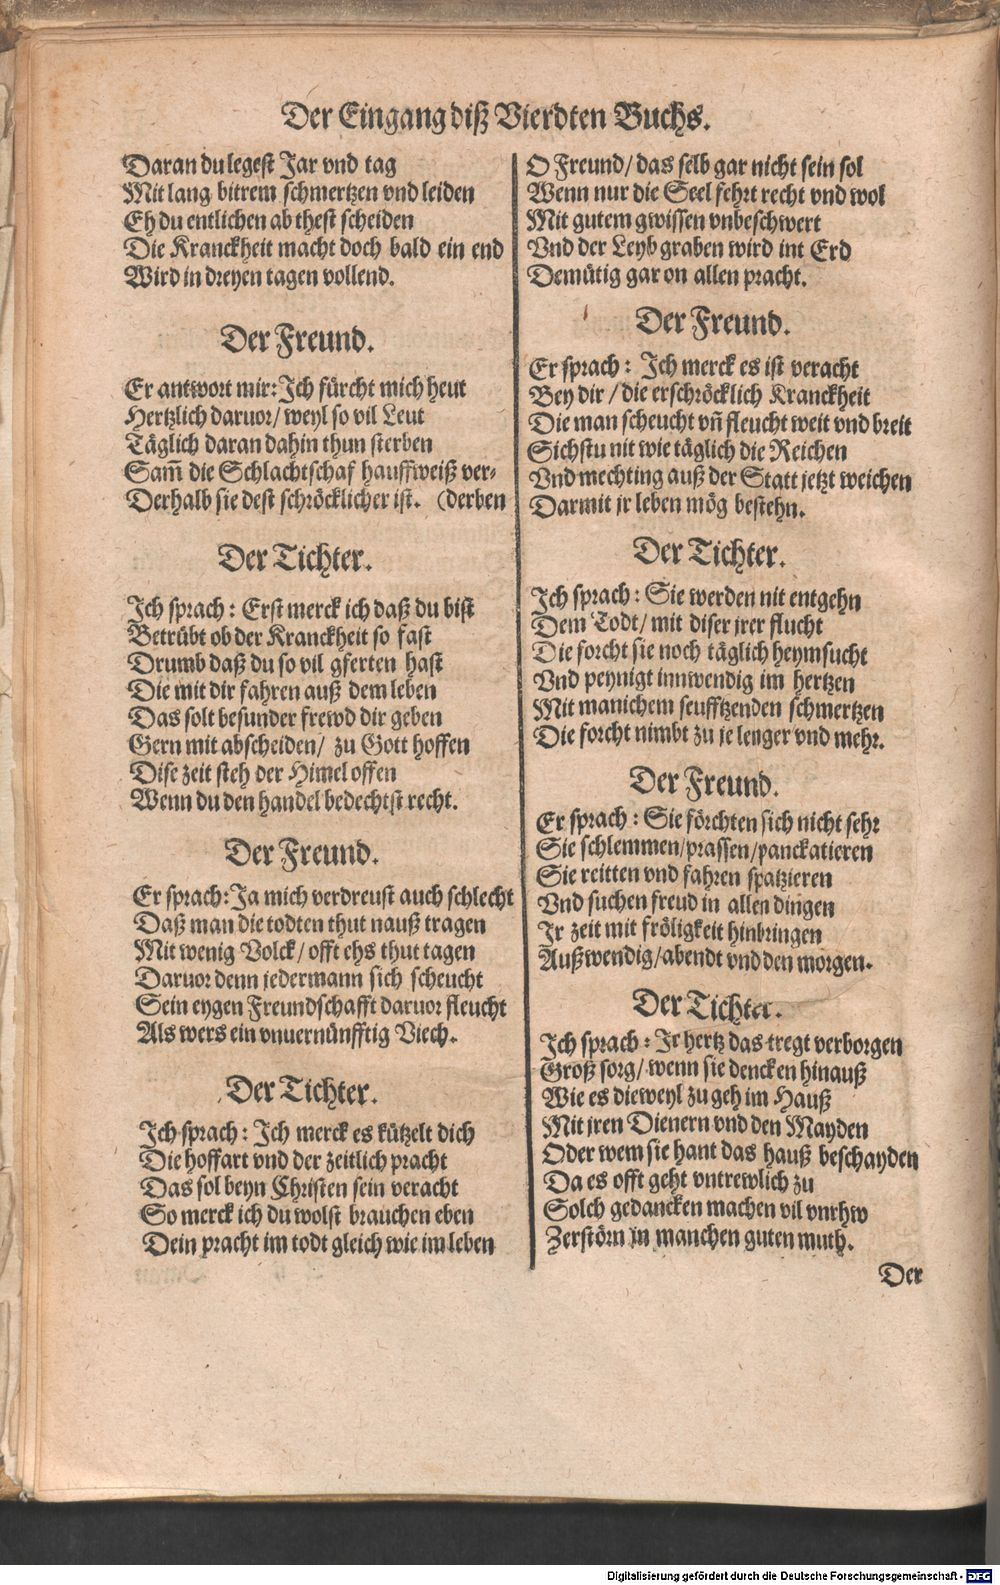 Der Eingang diß Vierdten Buchs.
Daran du legest Jar vnd tag
Mit lang bitrem schmertzen vnd leiden
Eh du entlichen ab thest scheiden
Die Kranckheit macht doch bald ein end
Wird in dreyen tagen vollend.
Der Freund.
Er antwort mir: Ich fürcht mich heut
Hertzlich daruor/ weyl so vil Leut
Täglich daran dahin thun sterben
Sam̃ die Schlachtschaf hauffweiß ver-
Derhalb sie dest schröcklicher ist. (derben
Der Tichter.
Ich sprach: Erst merck ich daß du bist
Betrübt ob der Kranckheit so fast
Drumb daß du so vil gferten hast
Die mit dir fahren auß dem leben
Das solt besunder frewd dir geben
Gern mit abscheiden/ zu Gott hoffen
Dise zeit steh der Himel offen
Wenn du den handel bedechtst recht.
Der Freund.
Er sprach: Ja mich verdreust auch schlecht
Daß man die todten thut nauß tragen
Mit wenig Volck/ offt ehs thut tagen
Daruor denn jedermann sich scheucht
Sein eygen Freundschafft daruor fleucht
Als wers ein vnuernünfftig Viech.
Der Tichter.
Ich sprach: Ich merck es kützelt dich
Die hoffart vnd der zeitlich pracht
Das sol beyn Christen sein veracht
So merck ich du wolst brauchen eben
Dein pracht im todt gleich wie im leben
O Freund/ das selb gar nicht sein sol
Wenn nur die Seel fehrt recht vnd wol
Mit gutem gwissen vnbeschwert
Vnd der Leyb graben wird int Erd
Demütig gar on allen pracht.
Der Freund.
Er sprach: Ich merck es ist veracht
Bey dir/ die erschröcklich Kranckheit
Die man scheucht vñ fleucht weit vnd breit
Sichstu nit wie täglich die Reichen
Vnd mechting auß der Statt jetzt weichen
Darmit jr leben mög bestehn.
Der Tichter.
Ich sprach: Sie werden nit entgehn
Dem Todt/ mit diser jrer flucht
Die forcht sie noch täglich heymsucht
Vnd peynigt innwendig im hertzen
Mit manichem seufftzenden schmertzen
Die forcht nimbt zu je lenger vnd mehr.
Der Freund.
Er sprach: Sie förchten sich nicht sehr
Sie schlemmen/prassen/panckatieren
Sie reitten vnd fahren spatzieren
Vnd suchen freud in allen dingen
Ir zeit mit fröligkeit hinbringen
Außwendig/abendt vnd den morgen.
Der Tichter.
Ich sprach: Ir hertz das tregt verborgen
Groß sorg/ wenn sie dencken hinauß
Wie es dieweyl zu geh im Hauß
Mit jren Dienern vnd den Mayden
Oder wem sie hant das hauß beschayden
Da es offt geht vntrewlich zu
Solch gedancken machen vil vnrhw
Zerstörn jn manchen guten muth.
Der
Digitalisierung gefördert durch die Deutsche Forschungsgemeinschaft - DFG